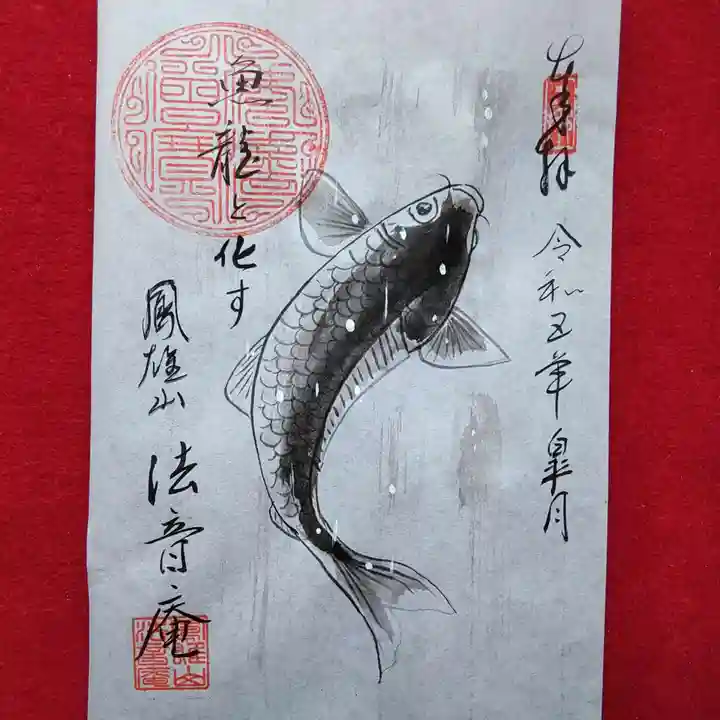 奉拝
令和五年皐月
魚龍と化す
鳳雄山
法音庵